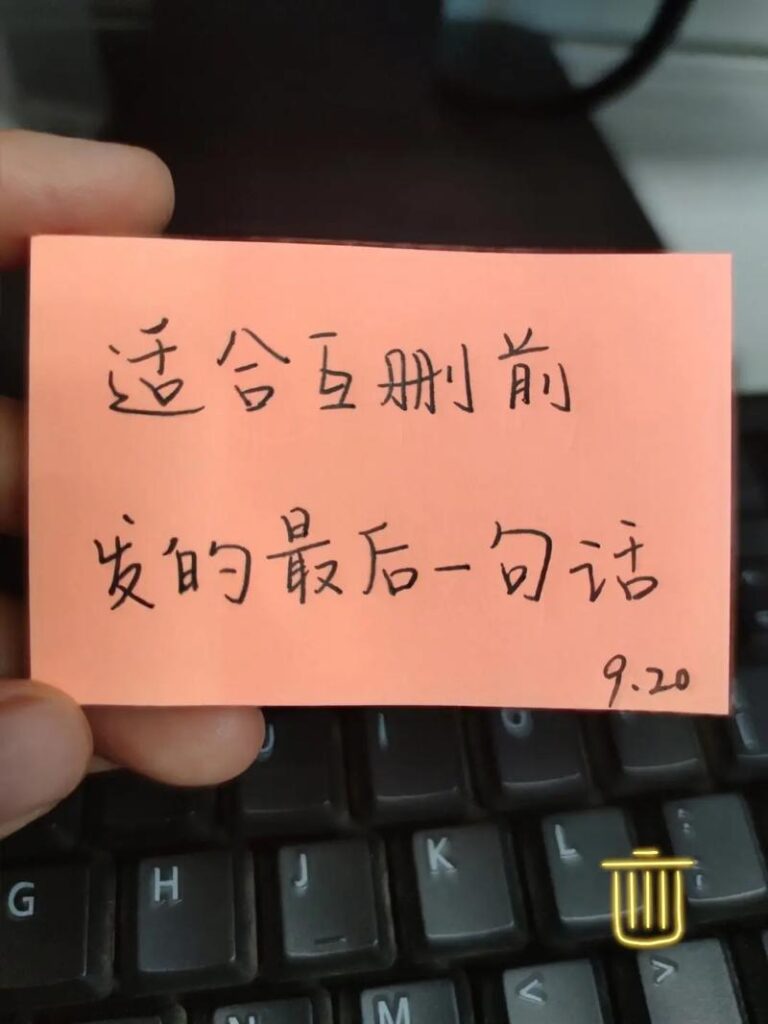 适合互删前
发的最后一句话
9.20
U I O
G H J K L : ;
N M < >